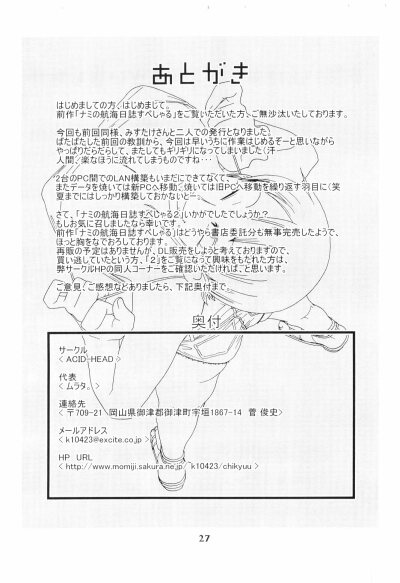 あとがき
はじめましての方、はじめまして。
前作「ナミの航海日誌すぺしゃる」をご覧いただいた方、ご無沙汰いたしております。
今回も前回同様、みすたけさんと二人での発行となりました。
ばたばたした前回の教訓から、今回は早いうちに作業はじめるぞーと思いながら
やっぱりだらだらして、またしてもギリギリになってしまいました（汗ー
人間、楽なほうに流れてしまうものですね・・・
2台のPC間でのLAN構築もいまだにできてなくて、
またデータを焼いては新PCへ移動、焼いては旧PCへ移動を繰り返す羽目に（笑
夏までにはしっかり構築しておかないとー。
さて、「ナミの航海日誌すぺしゃる２」いかがでしたでしょうか？
もしお気に召しましたなら幸いです。
前作「ナミの航海日誌すぺしゃる」はどうやら書店委託分も無事完売したようで、
ほっと胸をなでおろしております。
再販の予定はありませんが、DL販売をしようと考えておりますので、
買い逃していたという方、「２」をご覧になって興味をもたれた方は、
弊サークルHPの同人コーナーをご確認いただければ、と思います。
ご意見、ご感想などありましたら、下記奥付まで。
奥付
サークル
< ACID-HEAD >
代表
< ムラタ。 >
連絡先
< 〒709-21 岡山県御津郡御津町宇垣1867-14 菅 俊史>
メールアドレス
< k10423@excite.co.jp >
HP URL
< http://www.momiji.sakura.ne.jp/k10423/chikyuu >
27